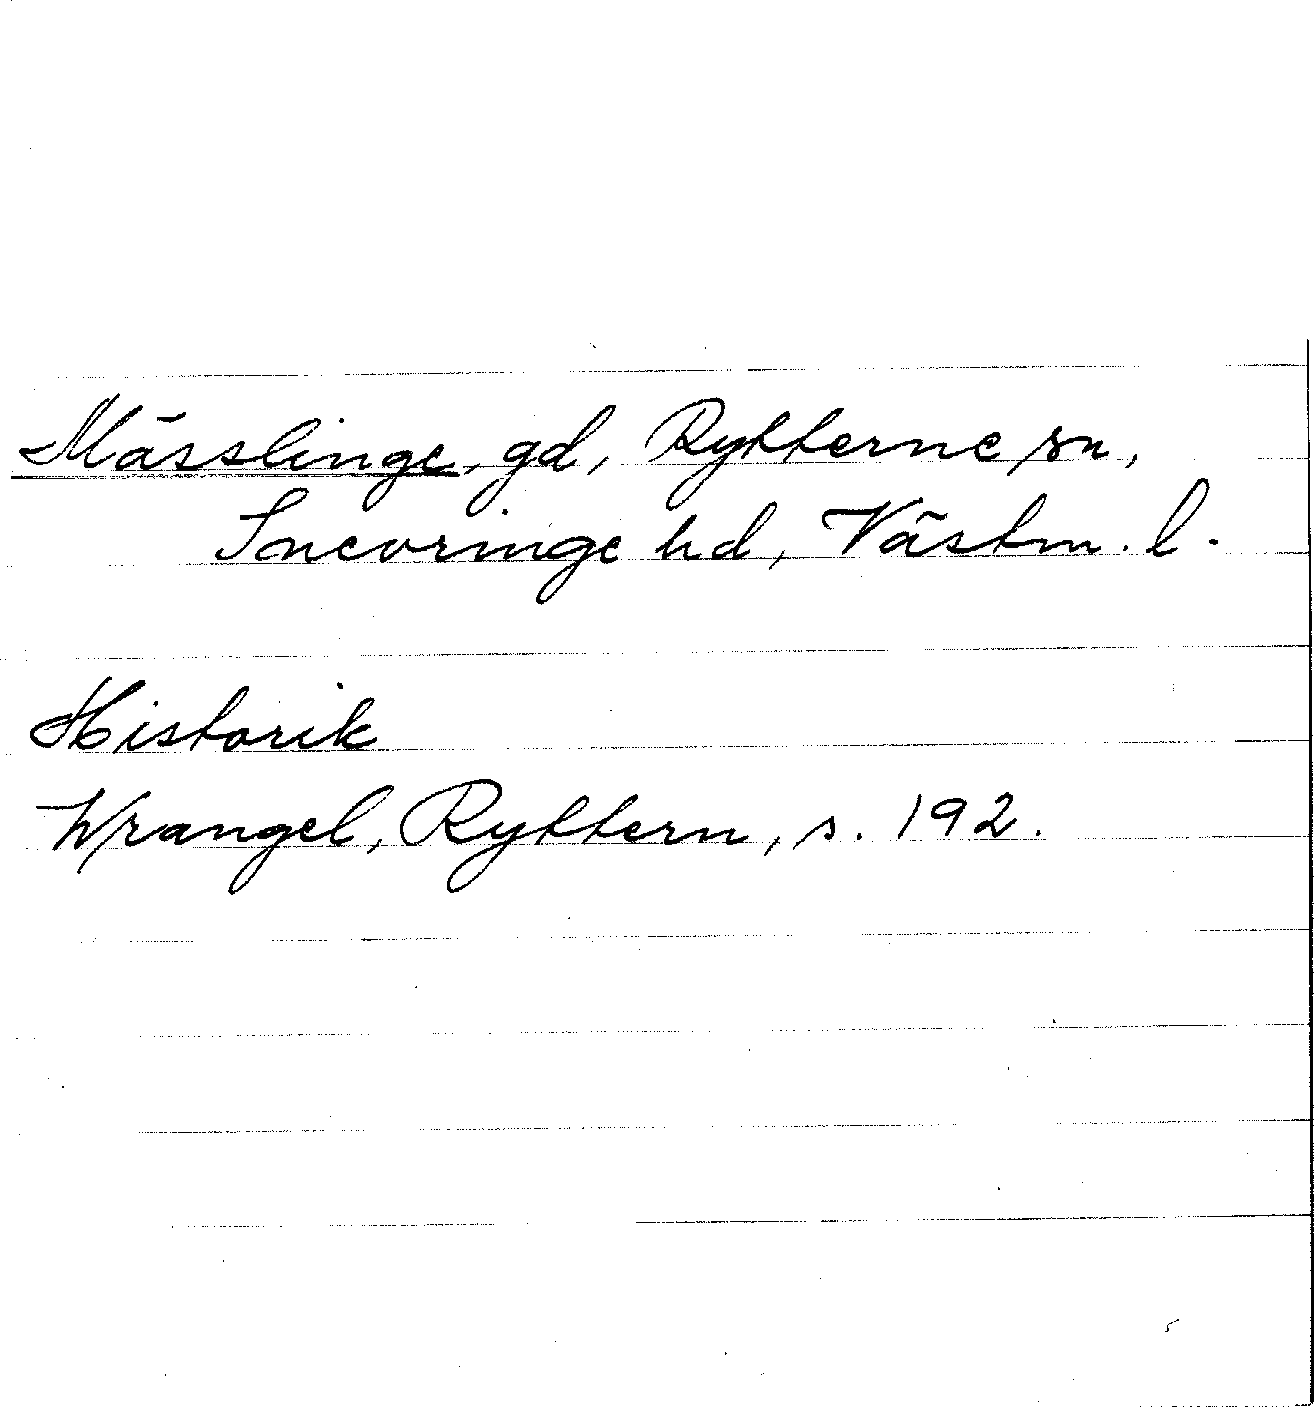 Mässlinge, gd, Rytterne sn,
Snevringe hd, Västm. l.
Historik
Wrangel, Ryttern, s. 192.